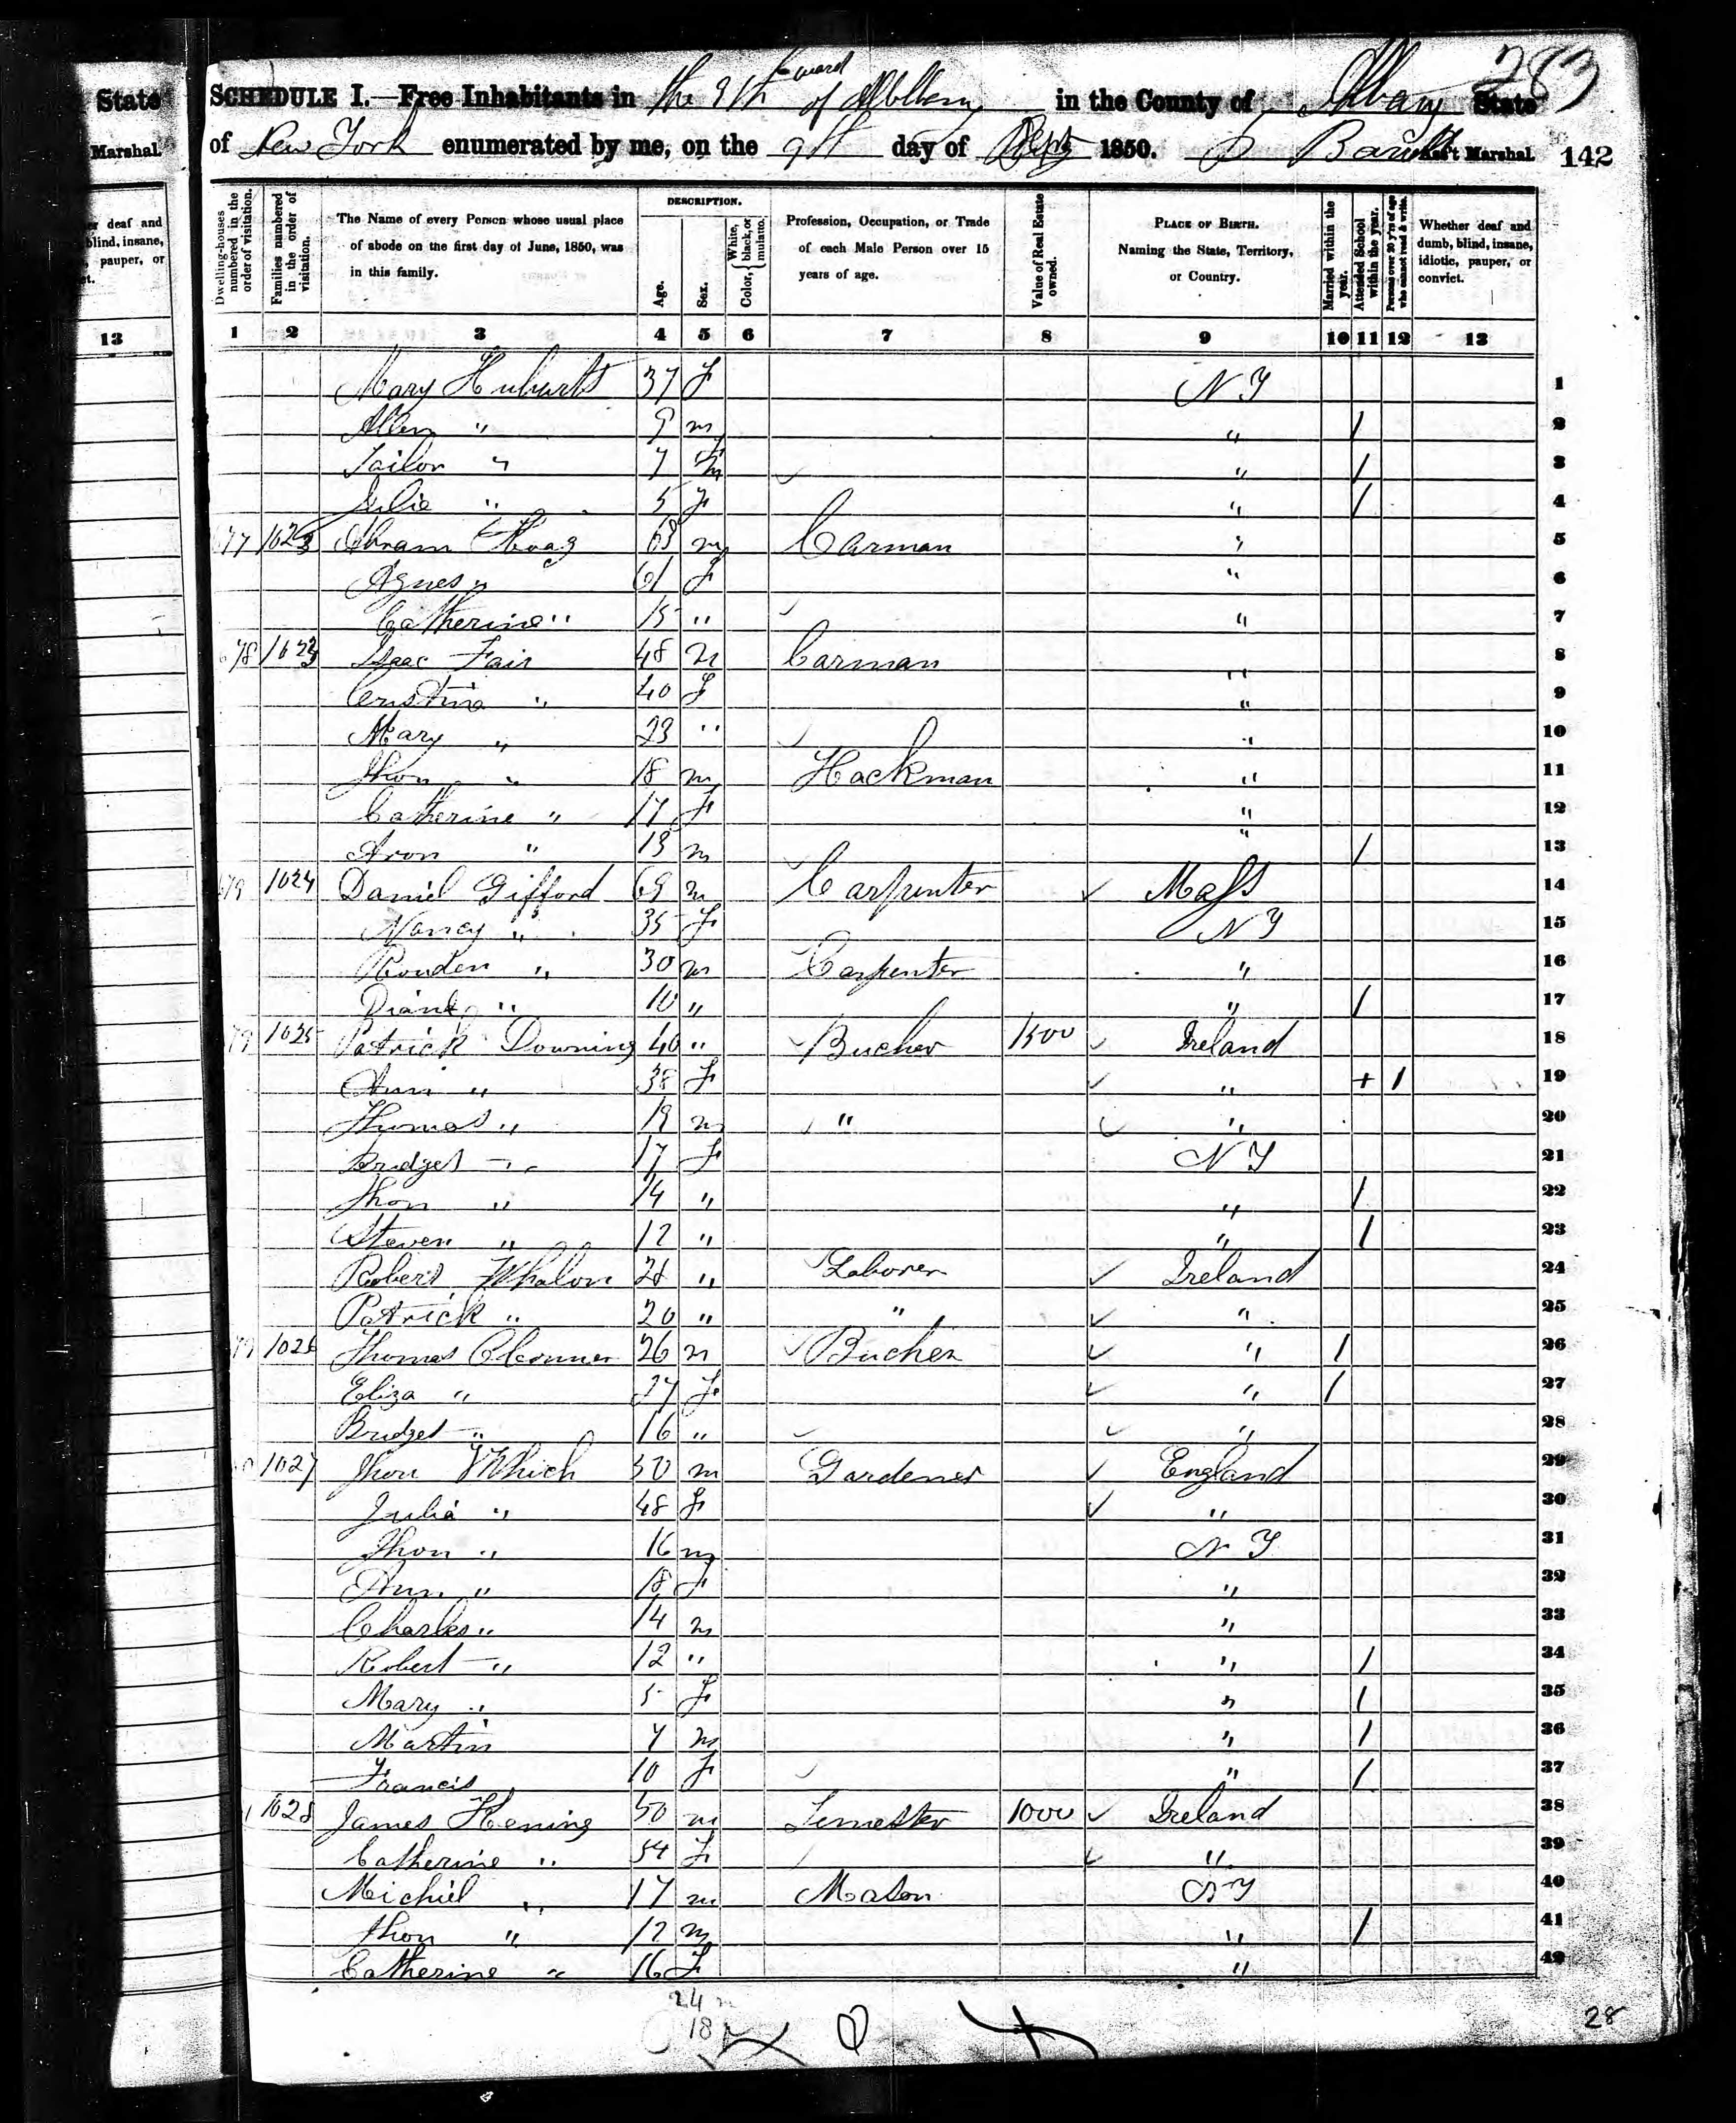 283
State
Marshal
er deaf and
blind, insane,
pauper, or
ct.
13
SCHEDULE I.—Free Inhabitants in the 9th ward of Albany in the County of Albany State
of New York enumerated by me, on the 9th day of Sept 1850. Ass't Marshal. 142
Dwelling-houses numbered in the order of visitation.
Families numbered in the order of visitation.
The Name of every Person whose usual place of abode on the first day of June, 1850, was in this family.
DESCRIPTION.
Age.
Sex.
Color, { White, black, or mulatto.
Profession, Occupation, or Trade of each Male Person over 15 years of age.
Value of Real Estate owned.
PLACE OF BIRTH. Naming the State, Territory, or Country.
Married within the year.
Attended School within the year.
Persons over 20 y'rs of age who cannot read & write.
Whether deaf and dumb, blind, insane, idiotic, pauper, or convict.
1 2 3 4 5 6 7 8 9 10 11 12 13
Mary 37 F NY 1
Allen " 9 m " / 2
Tailor " 7 m " / 3
Julia " 5 F " / 4
77 1023 Abram Hoag 63 m Carman " 5
Agnes " 61 F " 6
Catherine " 15 " " 7
78 1023 Isaac Fair 48 m Carman " 8
Cristina " 40 F " 9
Mary " 23 " " 10
Jhon " 18 m Hackman " 11
Catherine " 17 F " 12
Aron " 13 m " / 13
79 1024 Daniel Gifford 69 m Carpenter Mass 14
Nancy " 35 F NY 15
" 30 m Carpenter " 16
" 10 " " / 17
79 1025 Patrick Downing 40 " Bucher 1500 Ireland 18
Ann " 38 F " + / 19
Thomas " 19 m " " 20
Bridget " 17 F NY 21
Jhon " 14 " " / 22
Steven " 12 " " / 23
Robert Whalon 28 " Laborer Ireland 24
Patrick " 20 " " " 25
79 1026 Thomas OConner 26 m Bucher " / 26
Eliza " 27 F " / 27
Bridget " 16 " " 28
1027 Jhon Which 50 m Gardener England 29
Julia " 48 F " 30
Jhon " 16 m NY 31
Ann " 18 F " 32
Charles " 14 m " 33
Robert " 12 " " / 34
Mary " 5 F " / 35
Martin 7 m " / 36
Francis 10 F " / 37
1 1028 James Hening 50 m Temester 1000 Ireland 38
Catherine " 54 F " 39
Michiel " 17 m Mason NY 40
Jhon " 12 m " / 41
Catherine " 16 F " 42
24 m
18 F
28